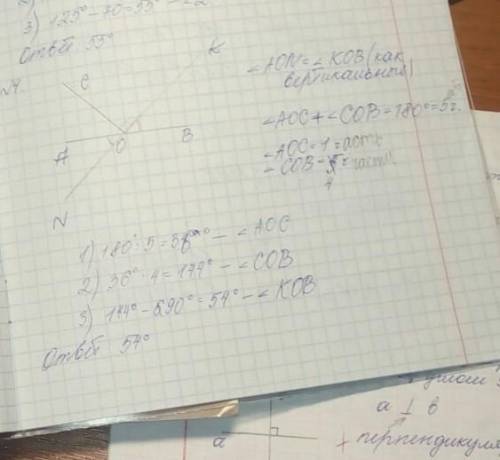 3) 125° - 70 = 55°
Ответ 55°
N4.
C
K
A
O
B
N
∠AON = ∠KOB (как
вертикальные)
∠AOC + ∠COB - 180° = 5
∠AOC = 1
∠COB
4
1) 180 : 5 = 36° - ∠AOC
2) 36° · 4 = 144° - ∠COB
3) 144° - 90° = 54° - ∠KOB
Ответ 54°
a ⊥ b
a
перпендикуля